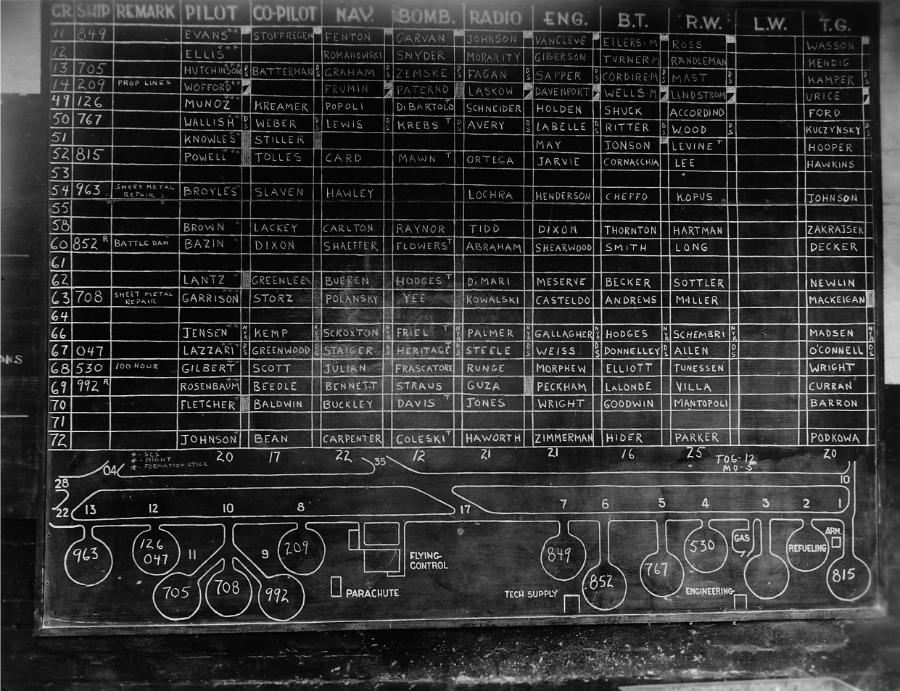 CR SHIP REMARK PILOT CO-PILOT NAV. BOMB. RADIO ENG. B.T. R.W. L.W. T.G.
11 849 EVANS STOFFREGEN FENTON GARVAN JOHNSON VANCLEVE EILERS-M ROSS WASSON
12 ELLIS ROMANOWSKI SNYDER MORARITY GIBERSON TURNER M RANDLEMAN KENDIG
13 705 HUTCHINSON BATTERMAN GRAHAM ZEMSKE FAGAN SAPPER CORDIREM MAST KAMPER
14 209 PROP LINES WOFFORD FRUMIN PATERNO LASKOW DAVENPORT WELLS-M LINDSTROM URICE
49 126 MUNOZ KREAMER POPOLI DIBARTOLO SCHNEIDER HOLDEN SHUCK ACCORDINO FORD
50 767 WALLISH WEBER LEWIS KREBS T AVERY LABELLE RITTER WOOD KUCZYNSKY
51 KNOWLES STILLER MAY JONSON LEVINE T HOOPER
52 815 POWELL TOLLES CARD MAWN T ORTEGA JARVIE CORNACCHIA LEE HAWKINS
53
54 963 SHEET METAL REPAIR BROYLES SLAVEN HAWLEY LOCHRA HENDERSON CHEFFO KOPUS JOHNSON
55
58 BROWN LACKEY CARLTON RAYNOR TIDD DIXON THORNTON HARTMAN ZAKRAJSEK
60 852 R BATTLE DAM BAZIN DIXON SHAEFFER FLOWERS T ABRAHAM SHEARWOOD SMITH LONG DECKER
61
62 LANTZ GREENLEE BUEREN HODGES T DIMARI MESERVE BECKER SOTTLER NEWLIN
63 708 SHEET METAL REPAIR GARRISON STORZ POLANSKY YEE KOWALSKI CASTELDO ANDREWS MILLER MACKEIGAN
64
66 JENSEN KEMP SCROXTON FRIEL T PALMER GALLAGHER HODGES SCHEMBRI MADSEN
67 047 LAZZARI GREENWOOD STAIGER HERITAGE STEELE WEISS DONNELLEY ALLEN O'CONNELL
68 530 100 HOUR GILBERT SCOTT JULIAN FRASCATORE RUNGE MORPHEW ELLIOTT TUNESSEN WRIGHT
69 992 R ROSENBAUM BEEDLE BENNETT STRAUS GUZA PECKHAM LALONDE VILLA CURRAN
70 FLETCHER BALDWIN BUCKLEY DAVIS T JONES WRIGHT GOODWIN MANTOPOLI BARRON
71
72 JOHNSON BEAN CARPENTER COLESKI T HAWORTH ZIMMERMAN HIDER PARKER PODKOWA
* - SCS
* - NIGHT
* - FORMATION STICK
20 17 22 12 21 21 16 25 TOG-12 20
MO-5
04 35 10
28
22 13 12 10 8 17 7 6 5 4 3 2 1
963 126 047 11 9 209 849 530 GAS REFUELING ARM.
FLYING CONTROL
705 708 992 852 767 815
PARACHUTE TECH SUPPLY ENGINEERING